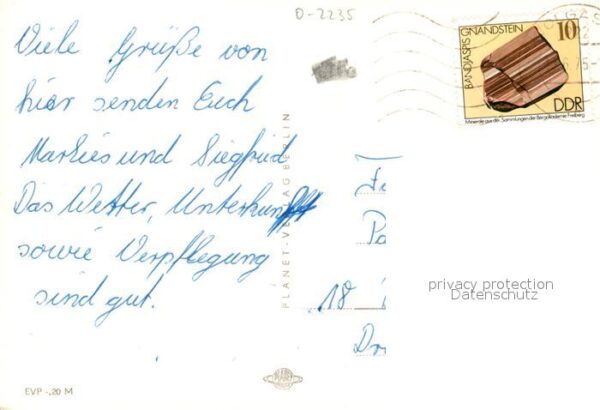 Viele Grüße von
hier senden Euch
Marlies und Siegfried
Das Wetter, Unterkunft
sowie Verpflegung
sind gut.
0-2235
BANDJASPIS GNANDSTEIN
10
DDR
Minerale aus den Sammlungen der Bergakademie Freiberg
PLANET-VERLAG BERLIN
18
privacy protection
Datenschutz
EVP -,20 M